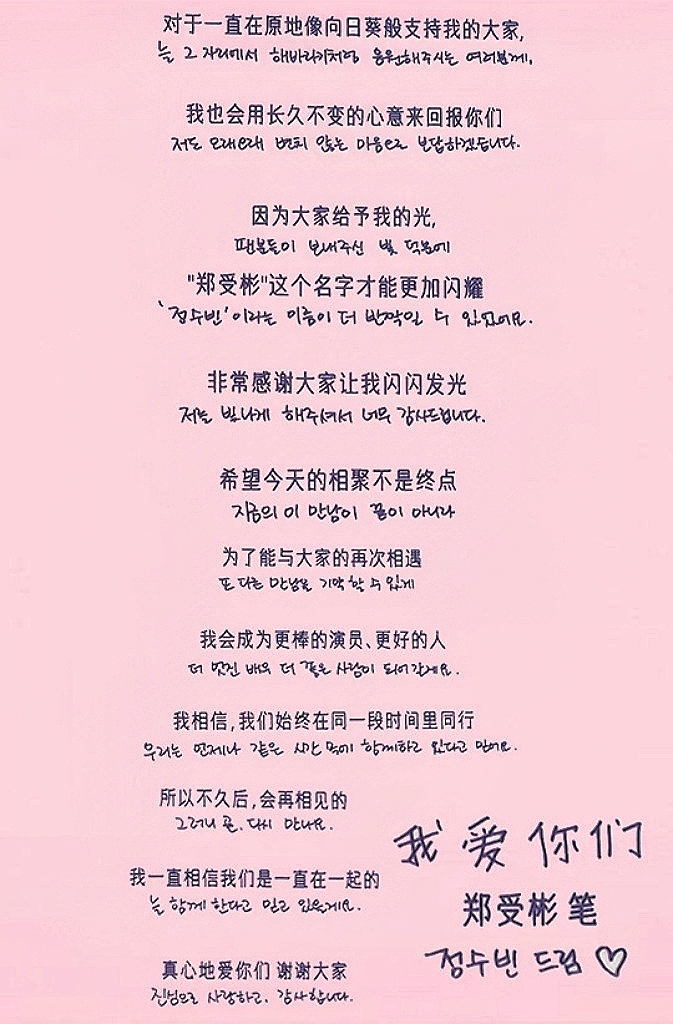 对于一直在原地像向日葵般支持我的大家,
늘 그 자리에서 해바라기처럼 응원해주시는 여러분께,
我也会用长久不变的心意来回报你们
저도 오래오래 변치 않는 마음으로 보답하겠습니다.
因为大家给予我的光,
팬분들이 보내주신 빛 덕분에
"郑受彬"这个名字才能更加闪耀
'정수빈'이라는 이름이 더 반짝일 수 있었어요.
非常感谢大家让我闪闪发光
저를 빛나게 해주셔서 너무 감사드립니다.
希望今天的相聚不是终点
지금의 이 만남이 끝이 아니라
为了能与大家的再次相遇
또 다른 만남을 기약할 수 있게
我会成为更棒的演员、更好的人
더 멋진 배우 더 좋은 사람이 되어갈게요.
我相信,我们始终在同一段时间里同行
우리는 언제나 같은 시간 속에 함께하고 있다고 믿어요.
所以不久后,会再相见的
그러니 곧, 다시 만나요.
我一直相信我们是一直在一起的
늘 함께 한다고 믿고 있을게요.
真心地爱你们 谢谢大家
진심으로 사랑하고, 감사합니다.
我爱你们
郑受彬 笔
정수빈 드림 ♡